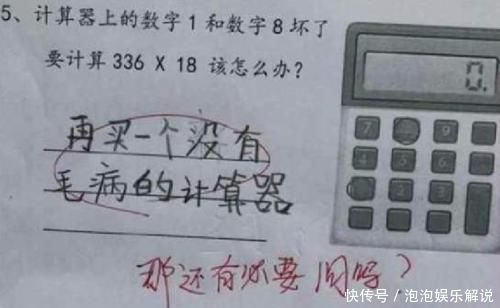 5、计算器上的数字1和数字8坏了
要计算336 X 18 该怎么办？
再买一个没有
毛病的计算器
那还有必要问吗？
0.
7
9
4
5
6
2
3
快传号/泡泡娱乐解说